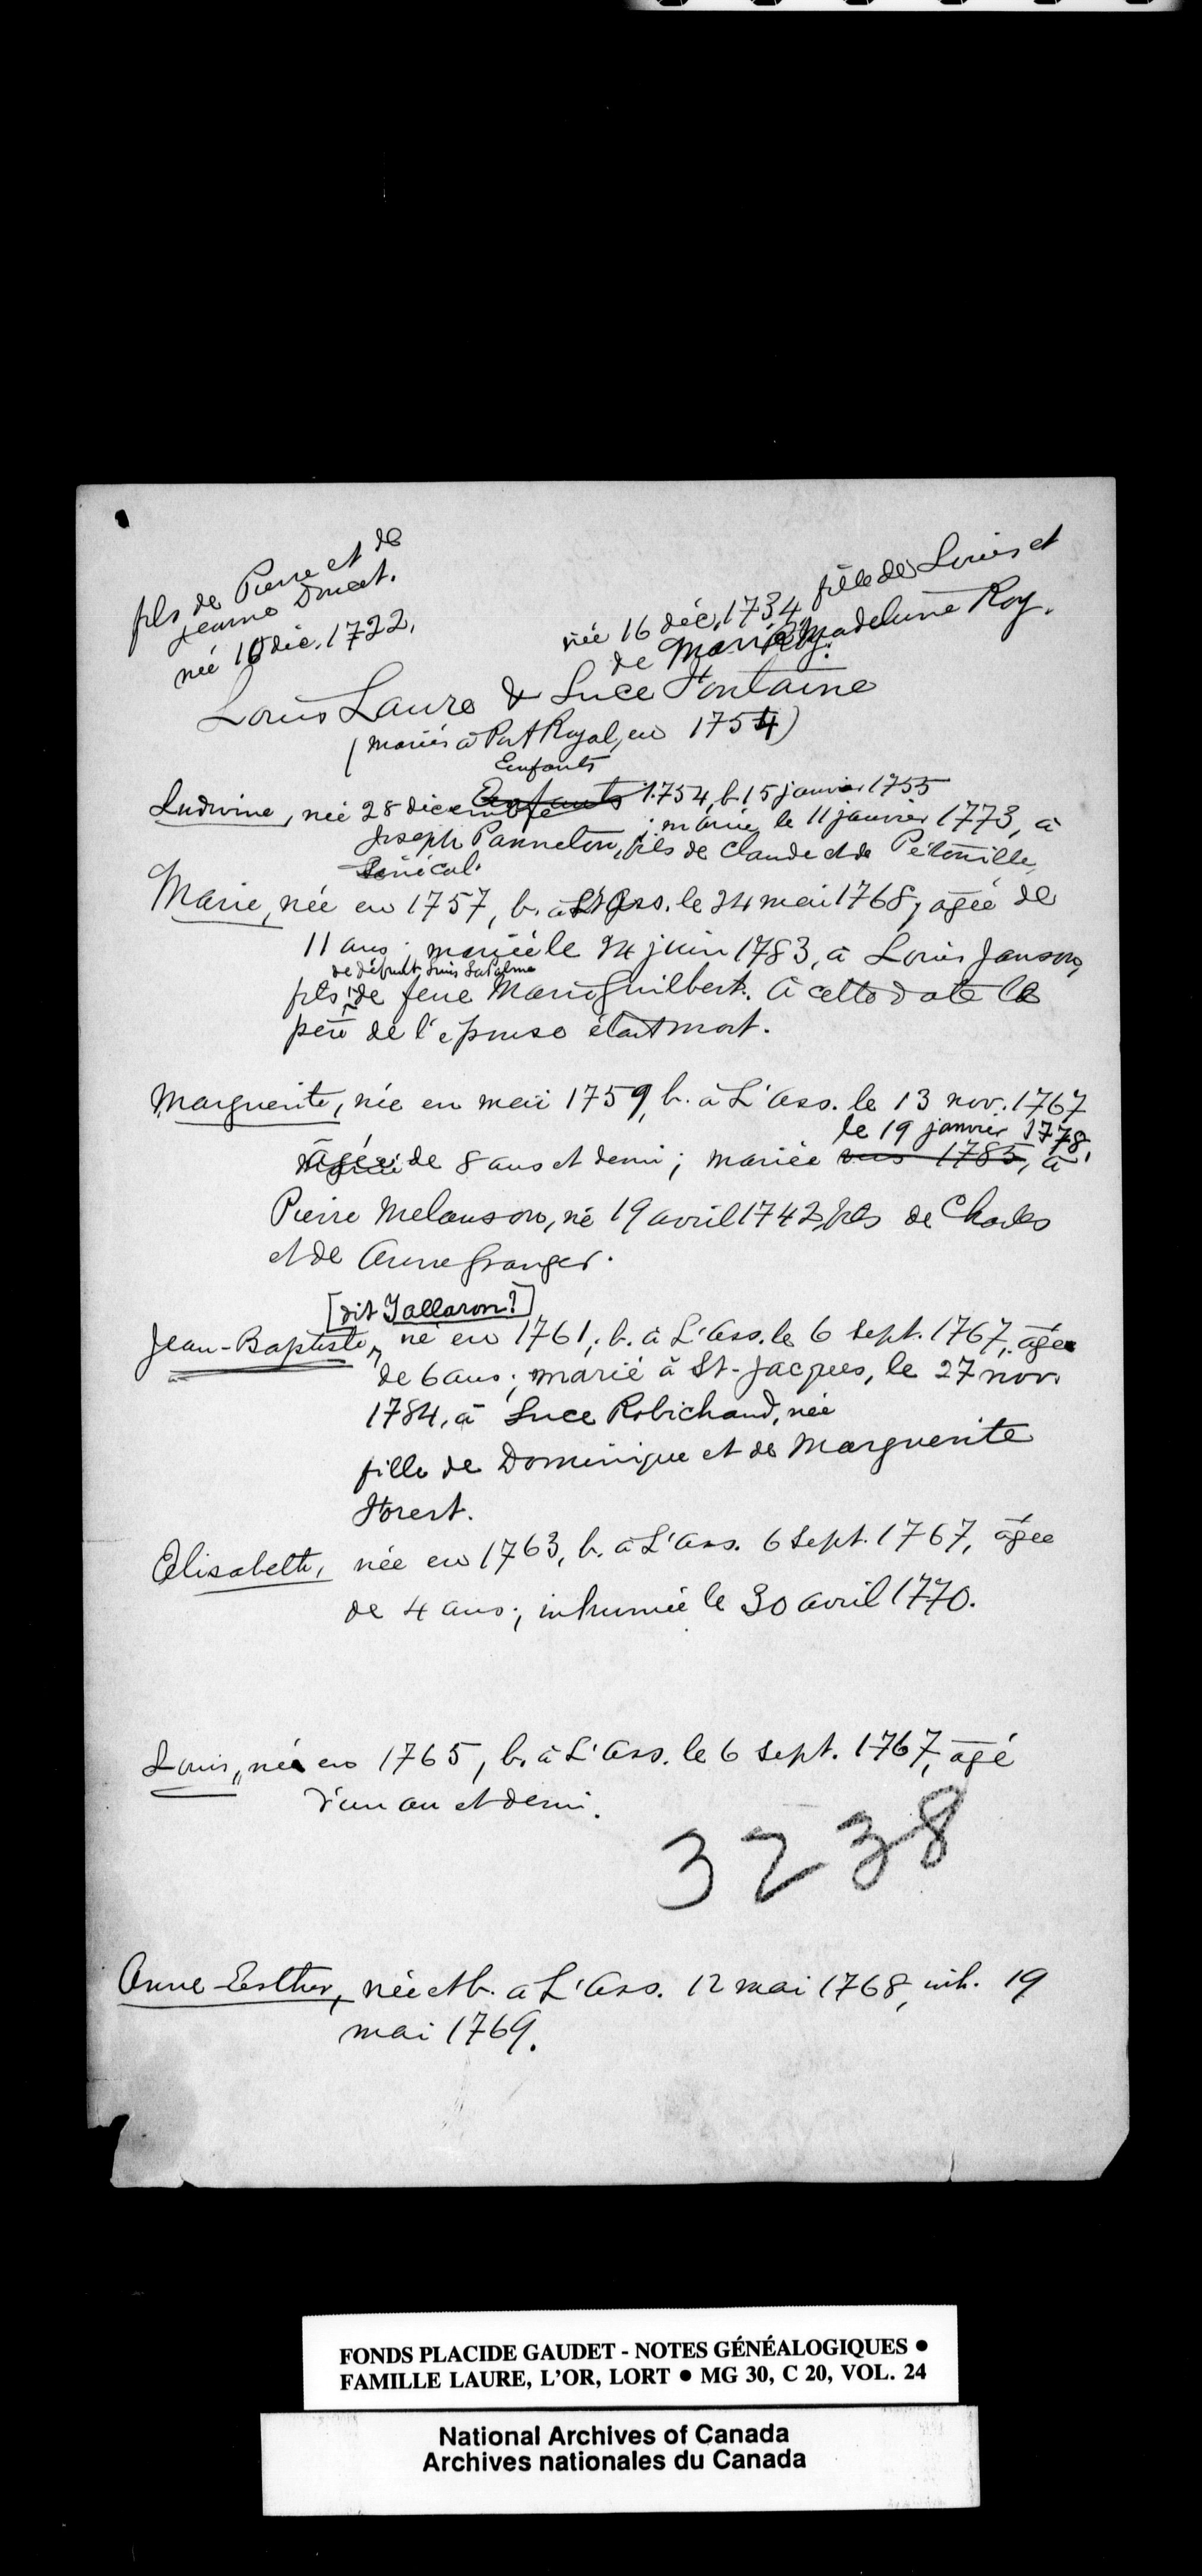 fils de Pierre et de
Jeanne Doucet.
née 16 déc. 1722.
née 16 déc. 1734 fille de Louis et
de Marie Madeleine Roy.
Louis Laure & Luce Fontaine
(mariés à Port Royal, en 1754)
Enfants
Ludivine, née 28 décembre 1754, b. 15 janvier 1755
; mariée le 11 janvier 1773, à
Joseph Panneton, fils de Claude et de Pétronille
Sénécal.
Marie, née en 1757, b. à L'Ass. le 24 mai 1768, agée de
11 ans; mariée le 24 juin 1783, à Louis Janson,
de défunt Louis LaPalme
fils de feue Marie Guilbert. A cette date le
père de l'épouse était mort.
Marguerite, née en mai 1759, b. à L'Ass. le 13 nov. 1767
le 19 janvier 1778,
agée de 8 ans et demi; mariée vers 1785, à
Pierre Melanson, né 19 avril 1742, fils de Charles
et de Anne Granger.
[dit Jallaron?]
Jean-Baptiste, né en 1761; b. à L'Ass. le 6 sept. 1767, agé
de 6 ans; marié à St-Jacques, le 27 nov.
1784, à Luce Robichaud, née
fille de Dominique et de Marguerite
Forest.
Elisabeth, née en 1763, b. à L'Ass. 6 Sept. 1767, âgée
de 4 ans; inhumée le 30 avril 1770.
Louis, né en 1765, b. à L'Ass. le 6 sept. 1767, agé
d'un an et demi.
3238
Anne-Esther, née et b. a L'Ass. 12 mai 1768, inh. 19
mai 1769.
FONDS PLACIDE GAUDET - NOTES GÉNÉALOGIQUES ●
FAMILLE LAURE, L'OR, LORT ● MG 30, C 20, VOL. 24
National Archives of Canada
Archives nationales du Canada